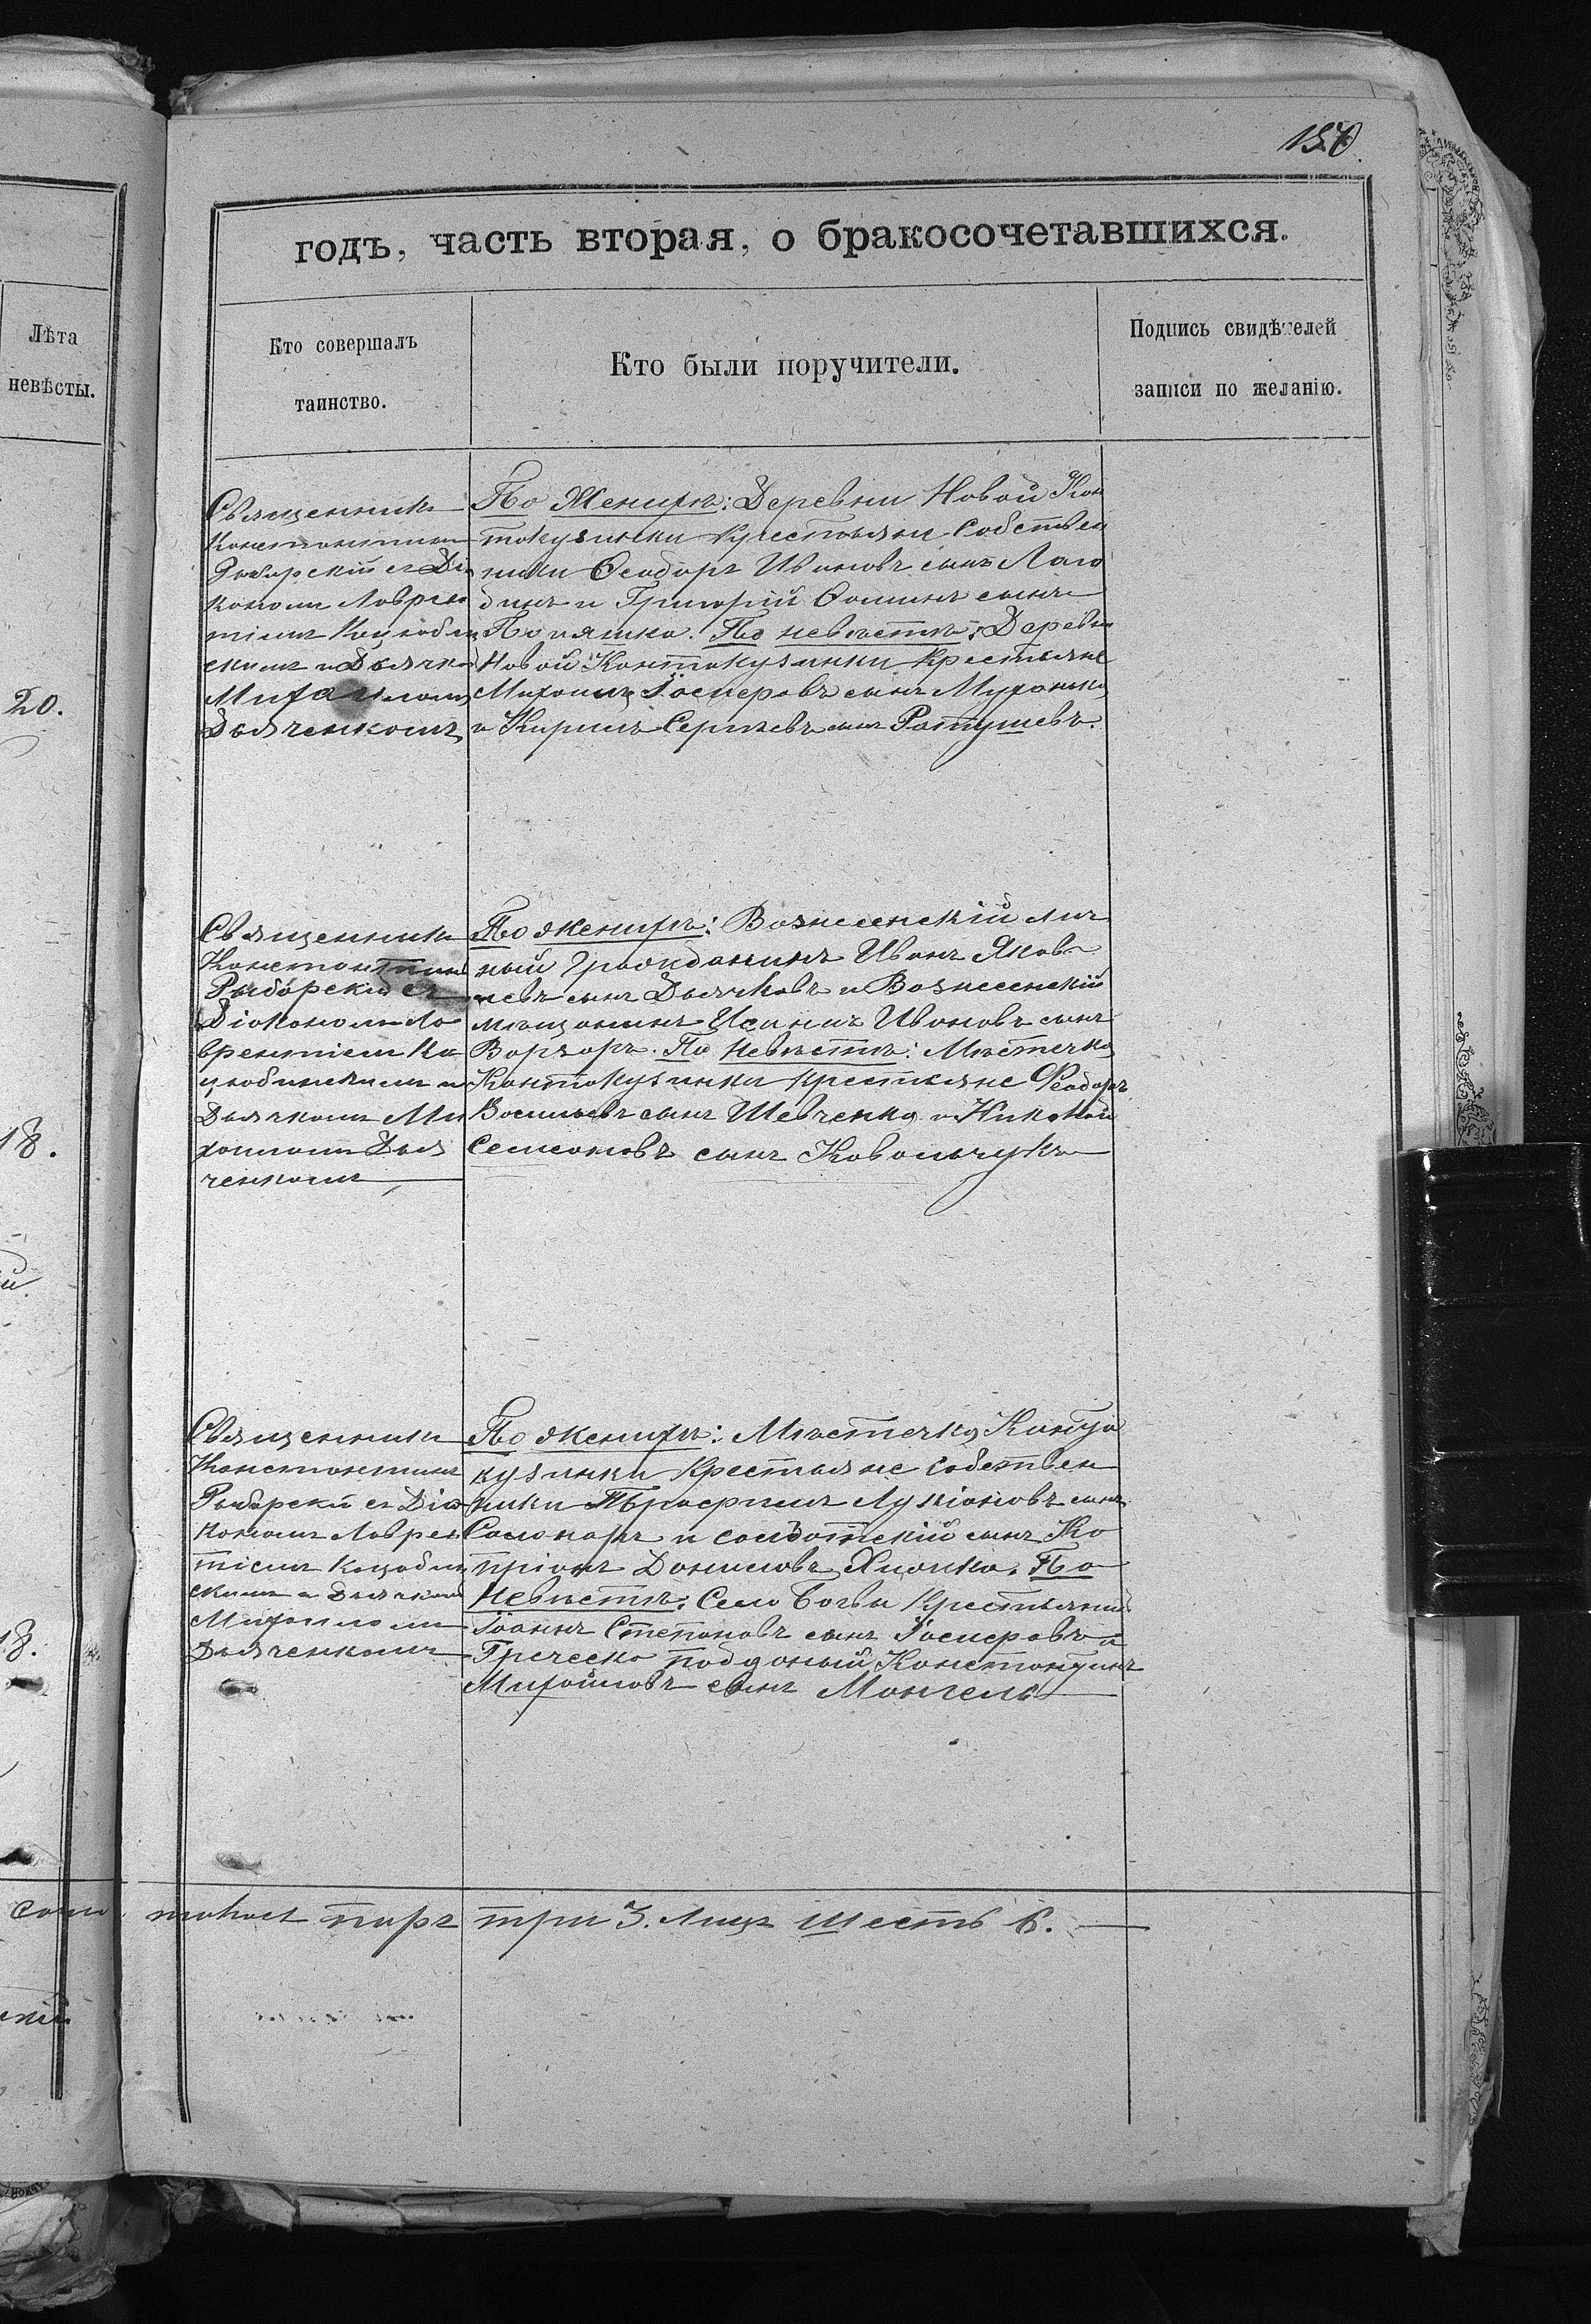 150
годъ, часть вторая, о бракосочетавшихся.
Лѣта
невѣсты.
Кто совершалъ
таинство.
Кто были поручители.
Подпись свидѣтелей
записи по желанію.
20.
Священникъ
Константинъ
Рыбарскій съ Діа
кономъ Лаврен
тіемъ Коцюбин
скимъ и Дьячко
Михаиломъ
Дьяченкомъ
По Женихѣ: Деревни Новой Кан
токузинки Крестьяни Собствен
ники Ѳеодоръ Ивановъ сынъ Лаго
динъ и Григорій Ѳоминъ сынъ
. По невѣстѣ: Деревни
Новой Контокузинки Крестьяне
Михаилъ Іосифовъ сынъ
и Кирилъ Сергѣевъ сынъ Ратушевъ.
18.
Священникъ
Константинъ
Рыбарскій съ
Діакономъ Ла
врентіем Ко
цюбинскимъ и
Дьячкомъ Ми
хаиломъ Дья
ченкомъ
По женихѣ: Вознесенскій лич
ный Гражданинъ Иванъ Яков
левъ сынъ Дьячковъ и Вознесенскій
мѣщанинъ Ивановъ сынъ
. По невѣстѣ: Мѣстечка
Контокузинки крестьяне Ѳеодоръ
Васильевъ сынъ Шевченко и Николай
Семеоновъ сынъ Ковальчукъ
18.
Священникъ
Константинъ
Рыбарскій съ Діа
кономъ Лаврен
тіемъ Коцюбин
скимъ и Дьячкомъ
Михаиломъ
Дьяченкомъ
По женихѣ: Мѣстечка Конто
кузинки Крестьяне собствен
ники Лукіановъ сынъ
и солдатскій сынъ Ки
пріанъ Даниловъ . По
Невѣстѣ: Крестьянинъ
Іоаннъ Степановъ сынъ Іосифовъ и
Греческо подданый Константинъ
Михайловъ сынъ
паръ три 3. Лицъ шесть 6.